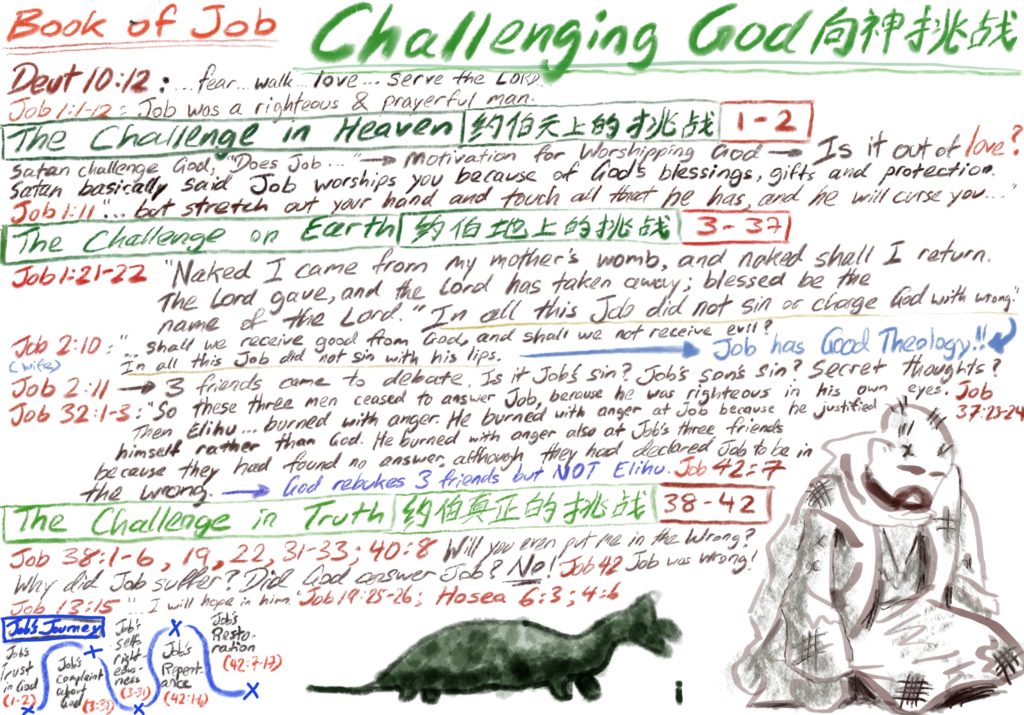 Book of Job
Challenging God 向神挑战
Deut 10:12 : ...fear...walk...love...serve the LORD.
Job 1:1-12: Job was a righteous & prayerful man.
The Challenge in Heaven 约伯天上的挑战 1-2
Satan challenge God, "Does Job..." → Motivation for Worshipping God → Is it out of love?
Satan basically said Job worships you because of God's blessings, gifts and protection.
Job 1:11 "...but stretch out your hand and touch all that he has, and he will curse you..."
The Challenge on Earth 约伯地上的挑战 3-37
Job 1:21-22 "Naked I came from my mother's womb, and naked shall I return.
The Lord gave, and the Lord has taken away; blessed be the
name of the Lord." In all this Job did not sin or charge God with wrong."
Job 2:10 : "... shall we receive good from God, and shall we not receive evil?
(wife) In all this Job did not sin with his lips. → Job has Good Theology!!
Job 2:11 → 3 friends came to debate. Is it Job's sin? Job's son's sin? Secret thoughts?
Job 32:1-3 : "So these three men ceased to answer Job, because he was righteous in his own eyes. Job 37:23-24
Then Elihu... burned with anger. He burned with anger at Job because he justified
himself rather than God. He burned with anger also at Job's three friends
because they had found no answer, although they had declared Job to be in
the wrong. → God rebukes 3 friends but NOT Elihu. Job 42:7
The Challenge in Truth 约伯真正的挑战 38-42
Job 38:1-6, 19, 22, 31-33; 40:8 Will you even put me in the wrong?
Why did Job suffer? Did God answer Job? No! Job 42 Job was wrong!
Job 13:15 "... I will hope in him." Job 19:25-26; Hosea 6:3; 4:6
Job's Journey
Job's Trust in God (1-2)
Job's complaint about God (3:31)
Job's self righteousness (3-31)
Job's Repentance (42:1-6)
Job's Restoration (42:7-17)